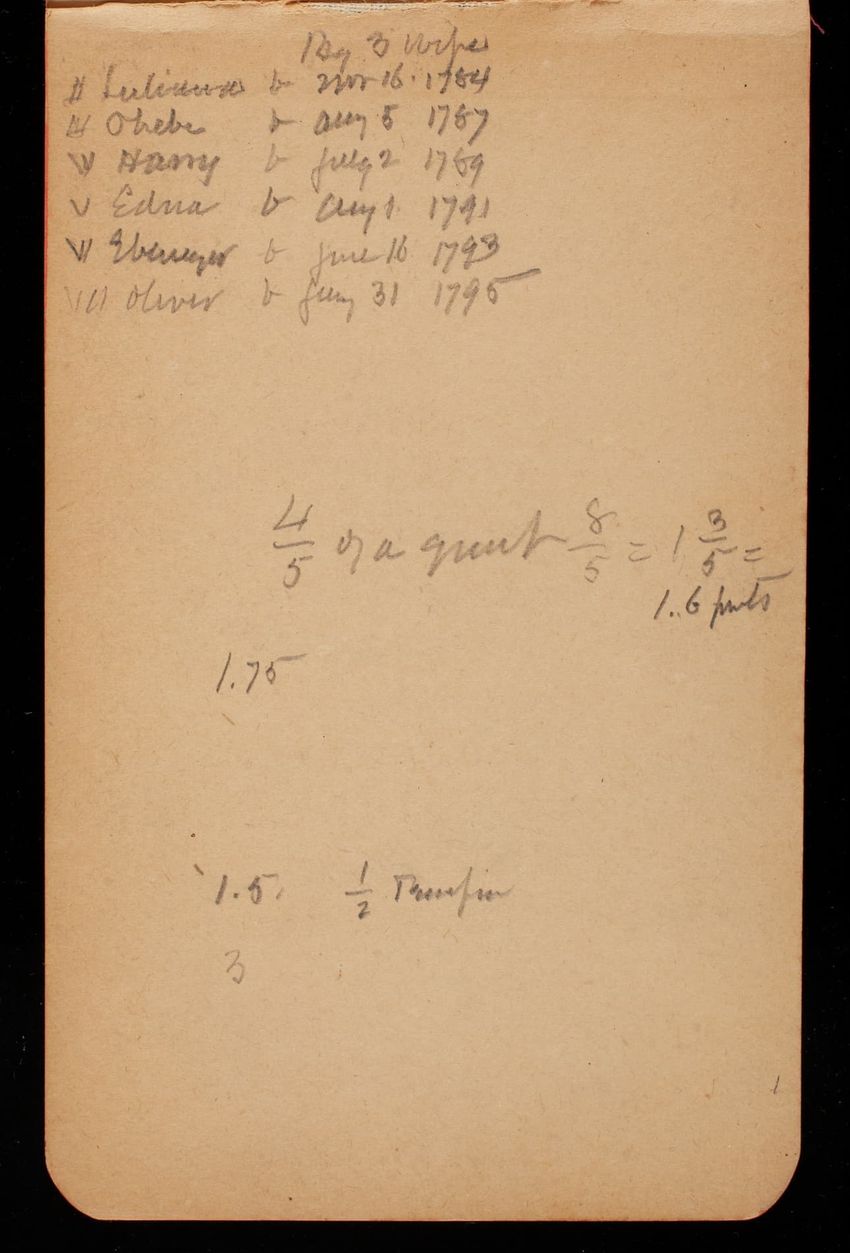 By 3 Wife
II Lulianna b Nov 16. 1784
III Phebe b Aug 5 1787
IV Harry b July 2 1789
V Edna b Aug 1 1791
VI Ebenezer b June 16 1793
VII Oliver b Jany 31 1795
4/5 of a quart 8/5 = 1 3/5 =
1.6 pints
1.75
1.5 1/2
3